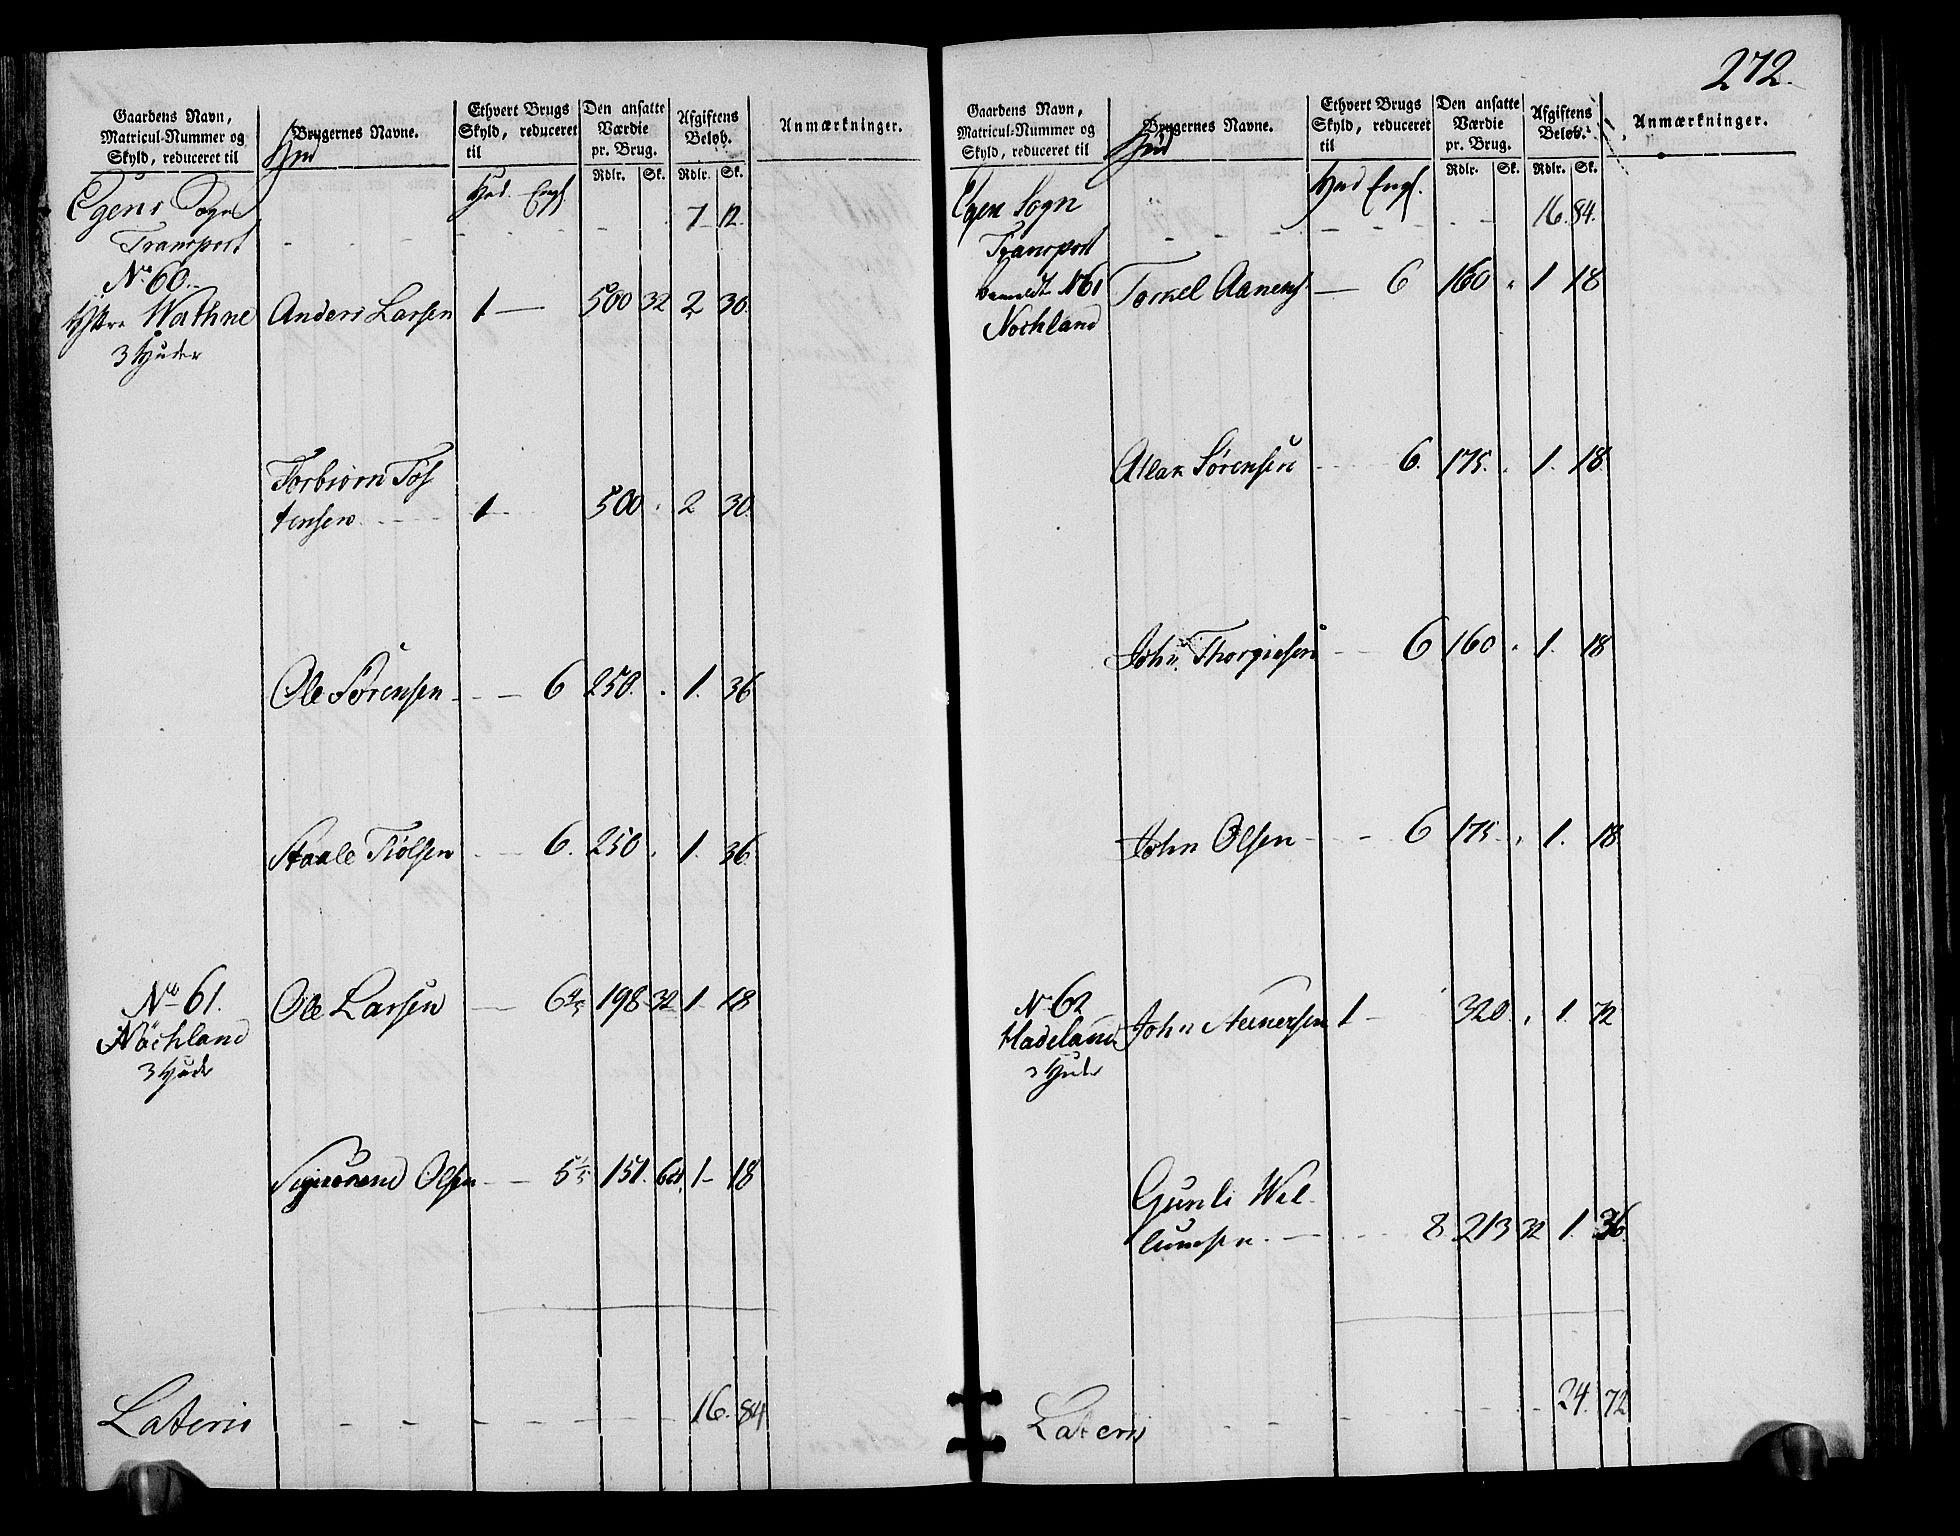 272.
Gaardens Navn,
Matricul-Nummer og
Skyld, reduceret til
Hud
Brugernes Navne.
Ethvert Brugs
Skyld, reduceret
til
Den ansatte
Værdie
pr. Brug.
Rdlr. Sk.
Afgiftens
Beløb.
Rdlr. Sk.
Anmærkninger.
Hud Engl
Egens Sogn
Transport - - - - - 7 12.
No 60.
Ystre Wathne Anders Larsen 1 — 500 32 2 30.
3 Huder
Torbiørn Tøs
tensen 1 500 . 2 30.
Ole Sørensen - - 6 250. . 1. 36
Staale Tiølsen - - 6. 250 . 1. 36.
No 61. Ole Larsen — 6 4/5 198 32 1 18
Nöchland
3 Huder
Sigurd Olsen - - 5 1/5 151. 64 1 18
Lateris - - - - - - 16. 84
Gaardens Navn,
Matricul-Nummer og
Skyld, reduceret til
Hud
Brugernes Navne.
Ethvert Brugs
Skyld, reduceret
til
Den ansatte
Værdie
pr. Brug.
Rdlr. Sk.
Afgiftens
Beløb.
Rdlr. Sk.
Anmærkninger.
Hud Engl.
Egen Sogn
Transport - - - - - 16. 84.
bemeldte No 61 Torkel Aanens — 6 160 . 1 18
Nochland
Atlak Sørensen - - 6. 175. . 1. 18
John Thorgiesen - - 6 160 . 1. 18
John Olsen - - 6 175. . 1. 18
No 62
Hadeland John Aenersen 1 - 320. . 1. 72
3 Huder
Gunli Wel
lumsen. - - 8 213 32 1. 36.
Lateris - - - - - - 24. 72